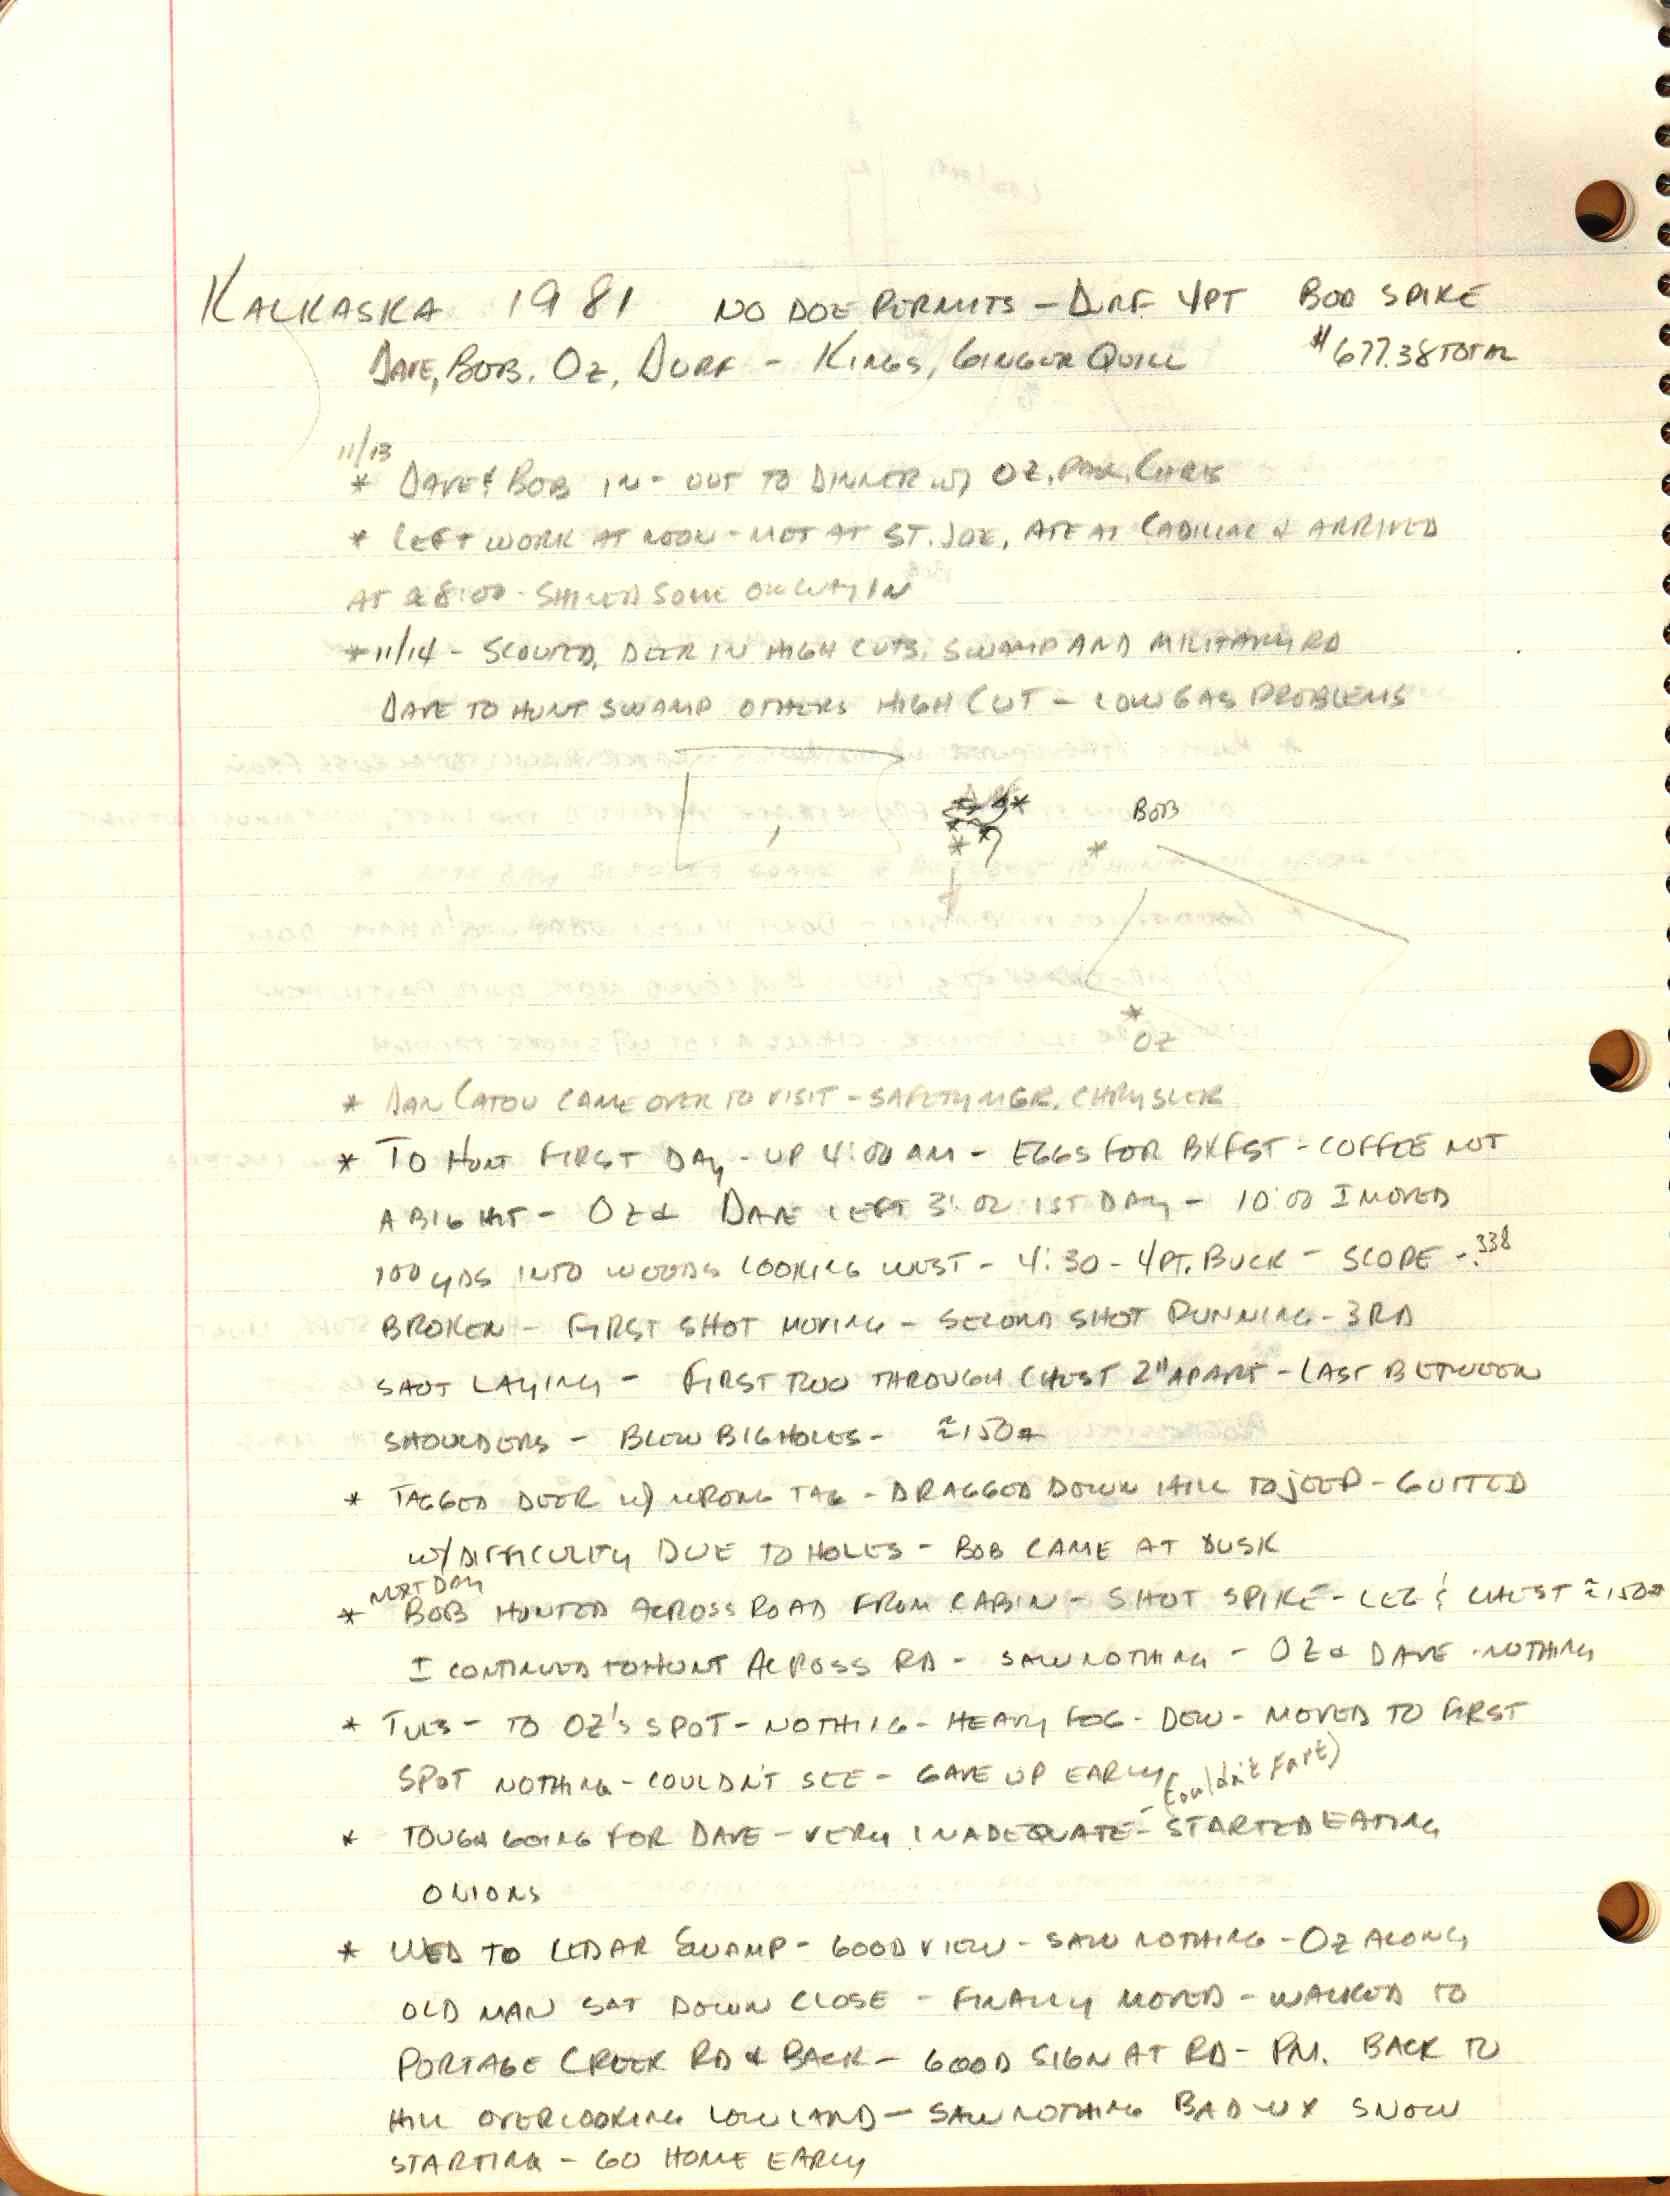 KALKASKA 1981 NO DOE PERMITS - DURF 4PT BOB SPIKE
DAVE, BOB, OZ, DURF - KINGS, GINGER QUILL $677.38 TOTAL
11/13
* DAVE & BOB IN - OUT TO DINNER W/ OZ, CHRIS
* LEFT WORK AT NOON - MET AT ST. JOE, ATE AT CADILLAC & ARRIVED
AT ≈ 8:00 - SHINED SOME ON WAY IN
* 11/14 - SCOUTED, DEER IN HIGH CUTS, SWAMP AND MILITARY RD
DAVE TO HUNT SWAMP OTHERS HIGH CUT - LOW GAS PROBLEMS
BOB
OZ
* DAN CATOU CAME OVER TO VISIT - SAFETY MGR. CHRYSLER
* TO HUNT FIRST DAY - UP 4:00 AM - EGGS FOR BKFST - COFFEE NOT
A BIG HIT - OZ & DAVE LEFT 3:02 1ST DAY - 10:00 I MOVED
100 YDS INTO WOODS LOOKING WEST - 4:30 - 4PT. BUCK - SCOPE - .338
BROKEN - FIRST SHOT MOVING - SECOND SHOT RUNNING - 3RD
SHOT LAYING - FIRST TWO THROUGH CHEST 2" APART - LAST BETWEEN
SHOULDERS - BLEW BIG HOLES - ≈150#
* TAGGED DEER W/ WRONG TAG - DRAGGED DOWN HILL TO JEEP - GUTTED
W/ DIFFICULTY DUE TO HOLES - BOB CAME AT DUSK
NEXT DAY
* BOB HUNTED ACROSS ROAD FROM CABIN - SHOT SPIKE - LEG & CHEST ≈150#
I CONTINUED TO HUNT ACROSS RD - SAW NOTHING - OZ & DAVE - NOTHING
* TUES - TO OZ'S SPOT - NOTHIG - HEAVY FOG - DEW - MOVED TO FIRST
SPOT NOTHING - COULDN'T SEE - GAVE UP EARLY
(couldn't Fart)
* TOUGH GOING FOR DAVE - VERY INADEQUATE - STARTED EATING
ONIONS
* WED TO CEDAR SWAMP - GOOD VIEW - SAW NOTHING - OZ ALONG
OLD MAN SAT DOWN CLOSE - FINALLY MOVED - WALKED TO
PORTAGE CREEK RD & BACK - GOOD SIGN AT RD - PM. BACK TO
HILL OVERLOOKING LOWLAND - SAW NOTHING BAD WX SNOW
STARTING - GO HOME EARLY